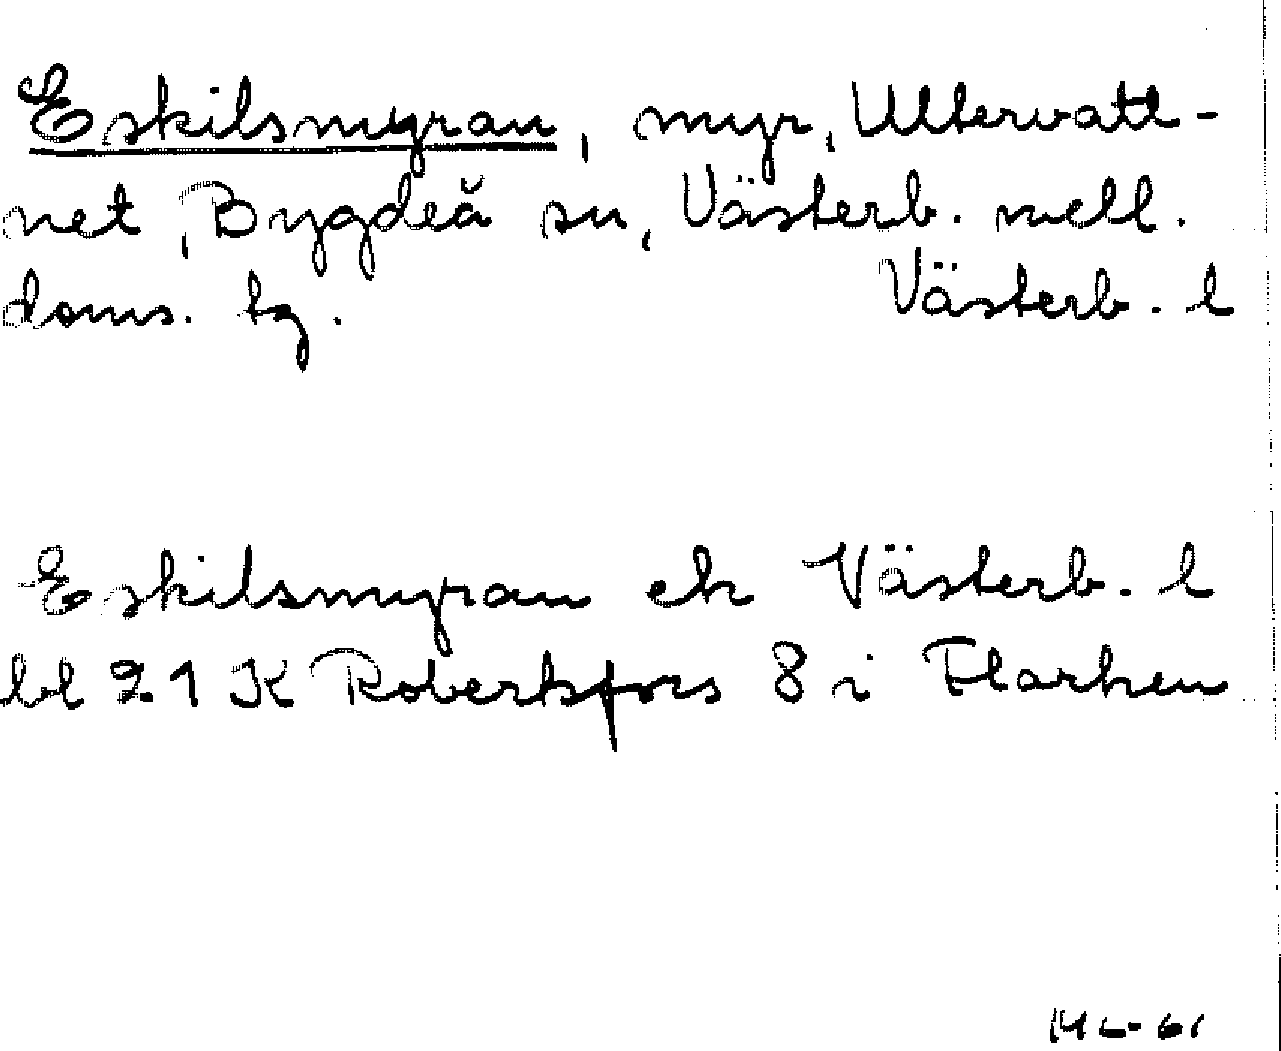 Eskilsmyran, myr, Ultervatt-
net, Bygdeå sn, Västerb. mell.
doms. tg. Västerb. l
Eskilsmyran ek Västerb. l
bl 21 K Robertsfors 8 i Flarken